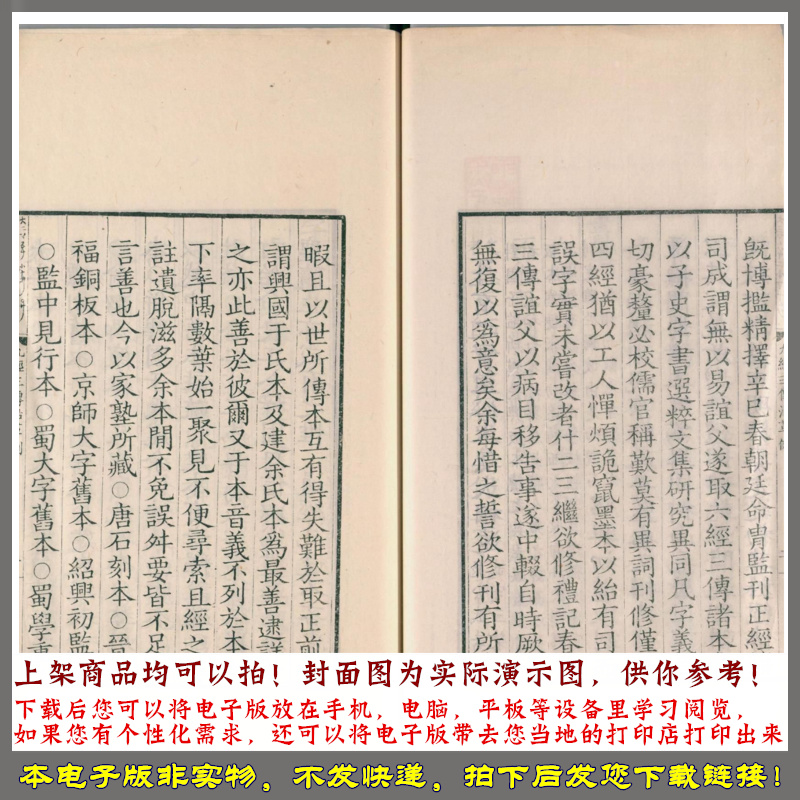 旣博㩜精擇辛巳春朝廷命胄監刊正經
司成謂無以易誼父遂取六經三傳諸本
以子史字書選粹文集研究異同凡字義
切豪釐必校儒官稱歎莫有異詞刊修僅
四經猶以工人憚煩詭竄墨本以紿有司
誤字實未嘗改者什二三繼欲修禮記春
三傳誼父以病目移告事遂中輟自時厥
無復以爲意矣余每惜之誓欲修刊有所
暇且以世所傳本互有得失難於取正前
謂興國于氏本及建余氏本爲最善逮詳
之亦此善於彼爾又于本音義不列於本
下率隔數葉始一聚見不便尋索且經之
註遺脫滋多余本閒不免誤舛要皆不足
言善也今以家塾所藏○唐石刻本○晉
福銅板本○京師大字舊本○紹興初監
○監中見行本○蜀大字舊本○蜀學重
上架商品均可以拍！封面图为实际演示图，供你参考！
下载后您可以将电子版放在手机，电脑，平板等设备里学习阅览，
如果您有个性化需求，还可以将电子版带去您当地的打印店打印出来
本电子版非实物，不发快递，拍下后发您下载链接！